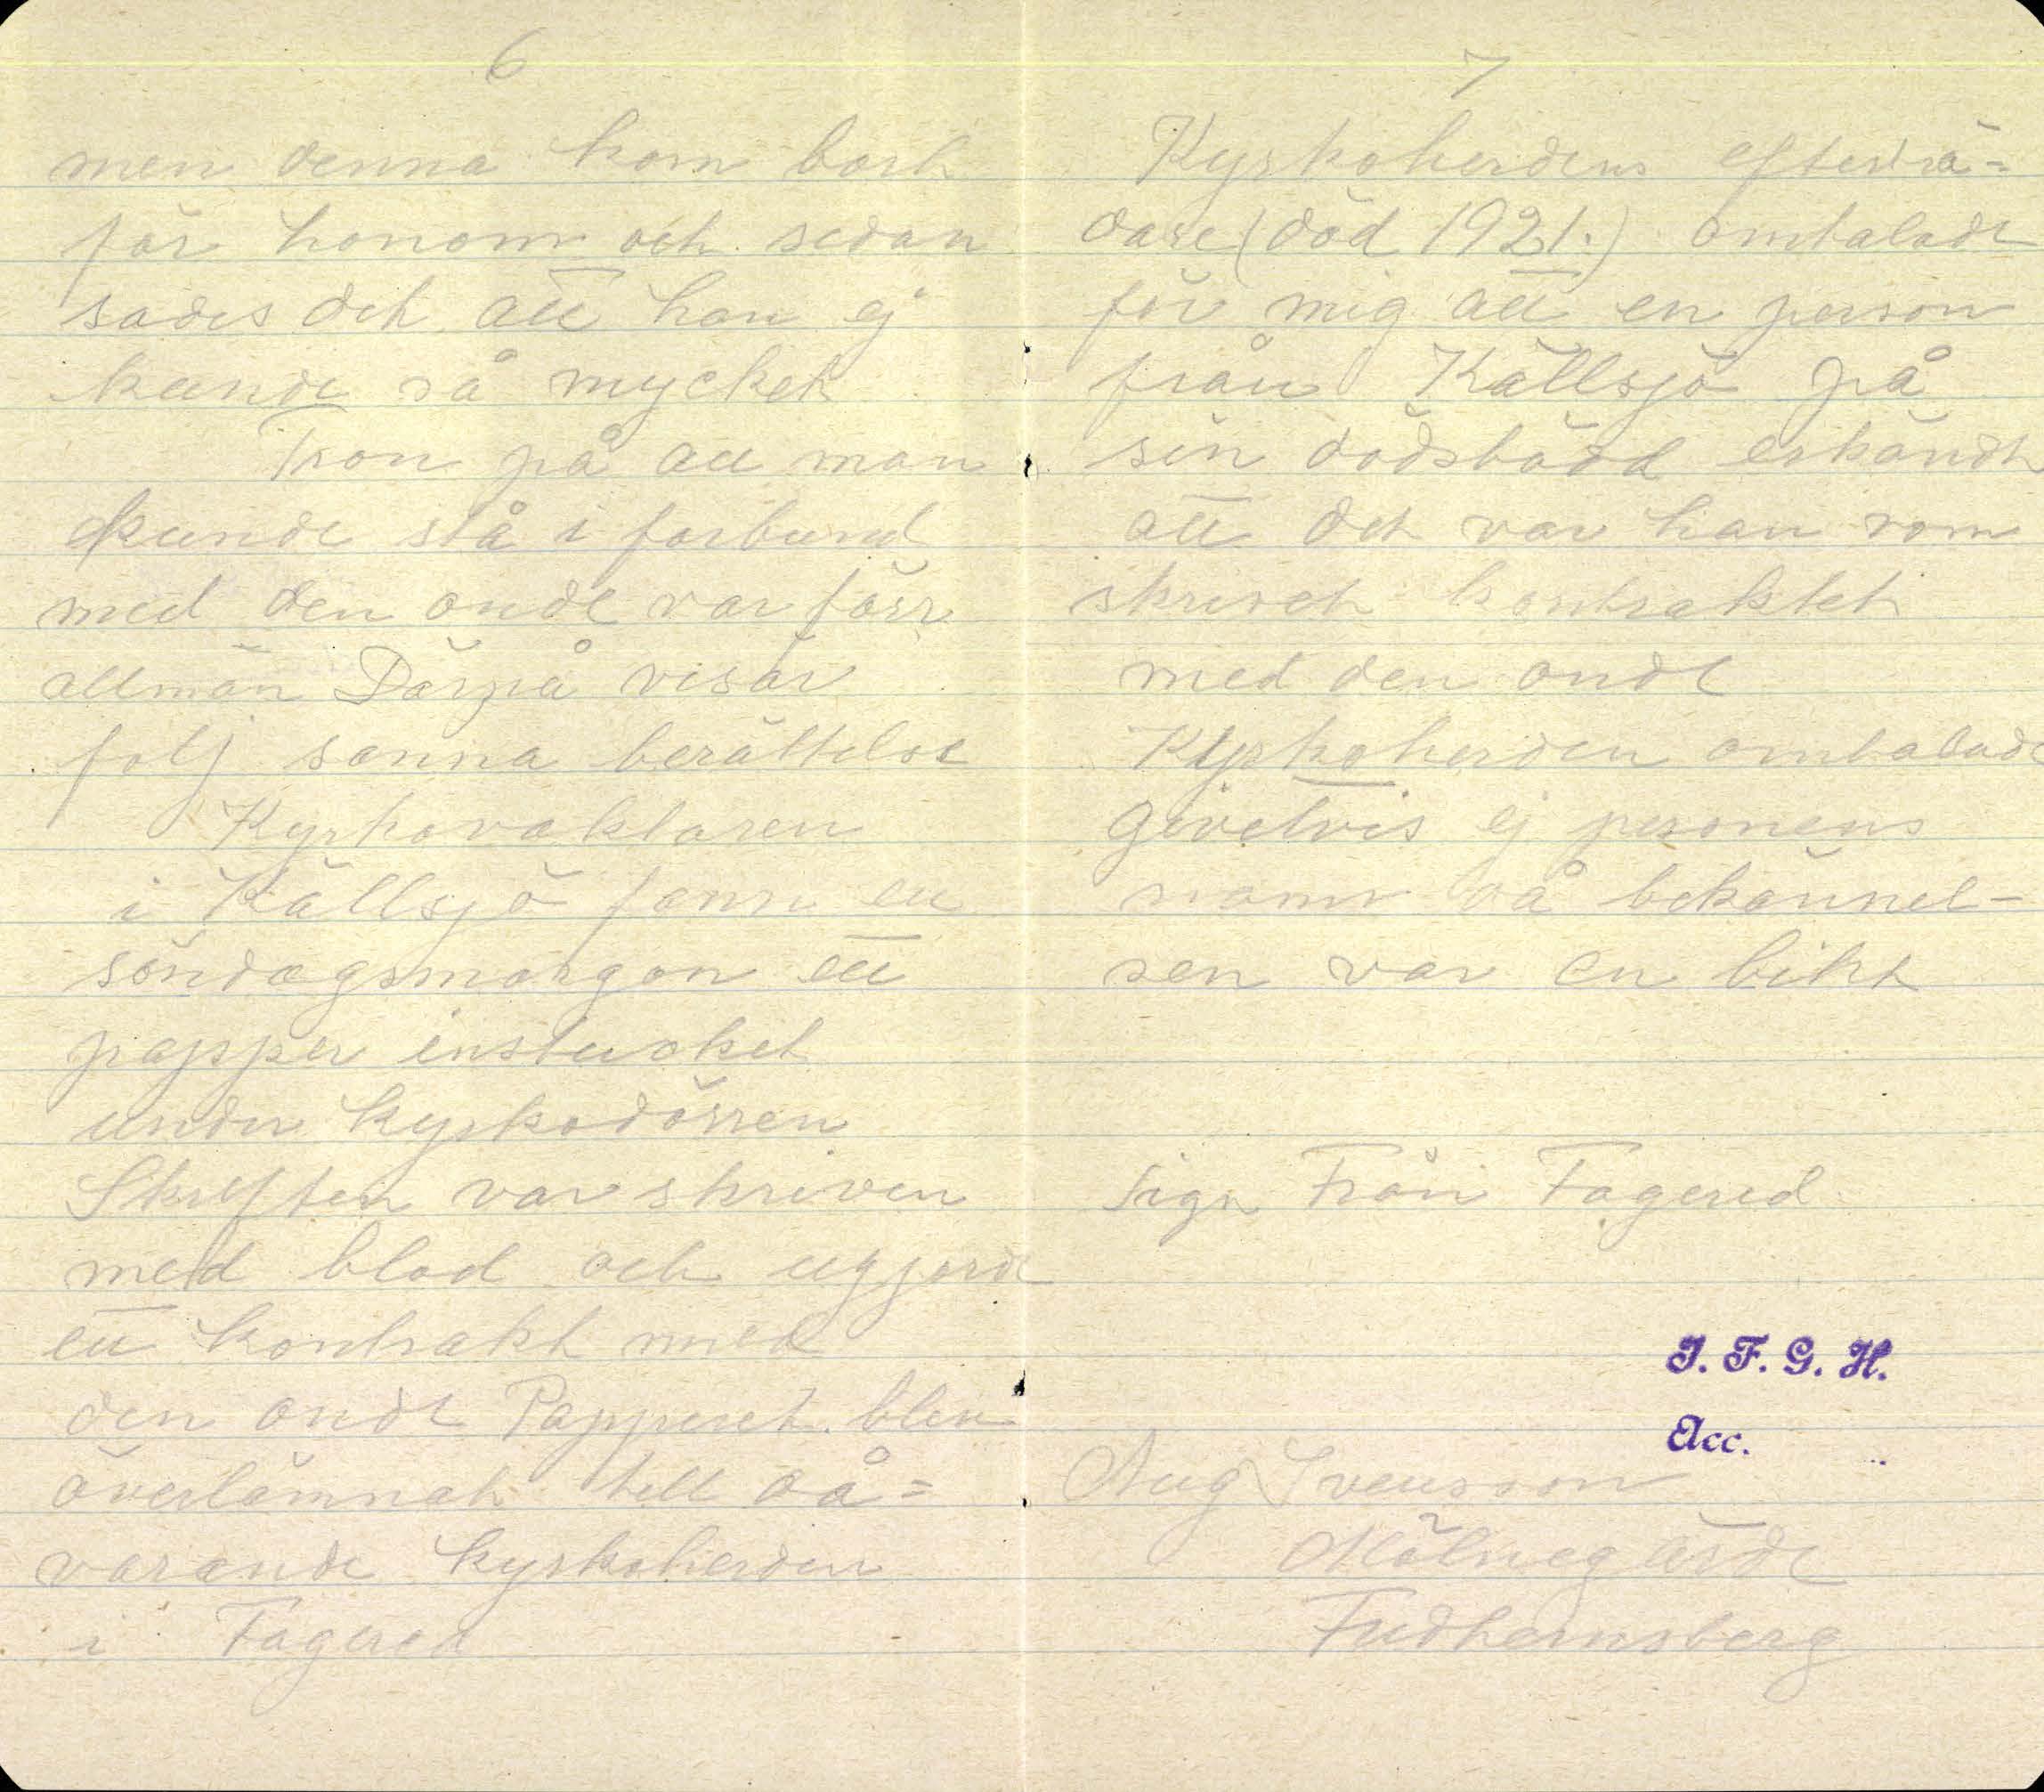 6
men denna kom bort
för honom och sedan
sades det att han ej
kunde så mycket
Tron på att man
kunde stå i förbund
med den onde var förr
allmän Därpå visar
följ sanna berättelse
Kyrkovaktaren
i Källsjö fann en
söndagsmorgon ett
papper instucket
under kyrkodörren
Skriften var skriven
med blod och uppjorde
ett kontrakt med
den onde Papperet blev
överlämnat till då=
varande kyrkoherden
i Fagered
7
Kyrkoherdens efterträ=
dare (död 1921.) omtalade
för mig att en person
från Källsjö på
sin dödsbädd erkändt
att det var han som
skrivet kontraktet
med den onde
Kyrkoherden omtalade
givetvis ej personens
namn då bekännel-
sen var en bikt
Sign Från Fagered
I. F. G. H.
Acc.
Aug Svensson
Mölnegärde
Fridhemsberg